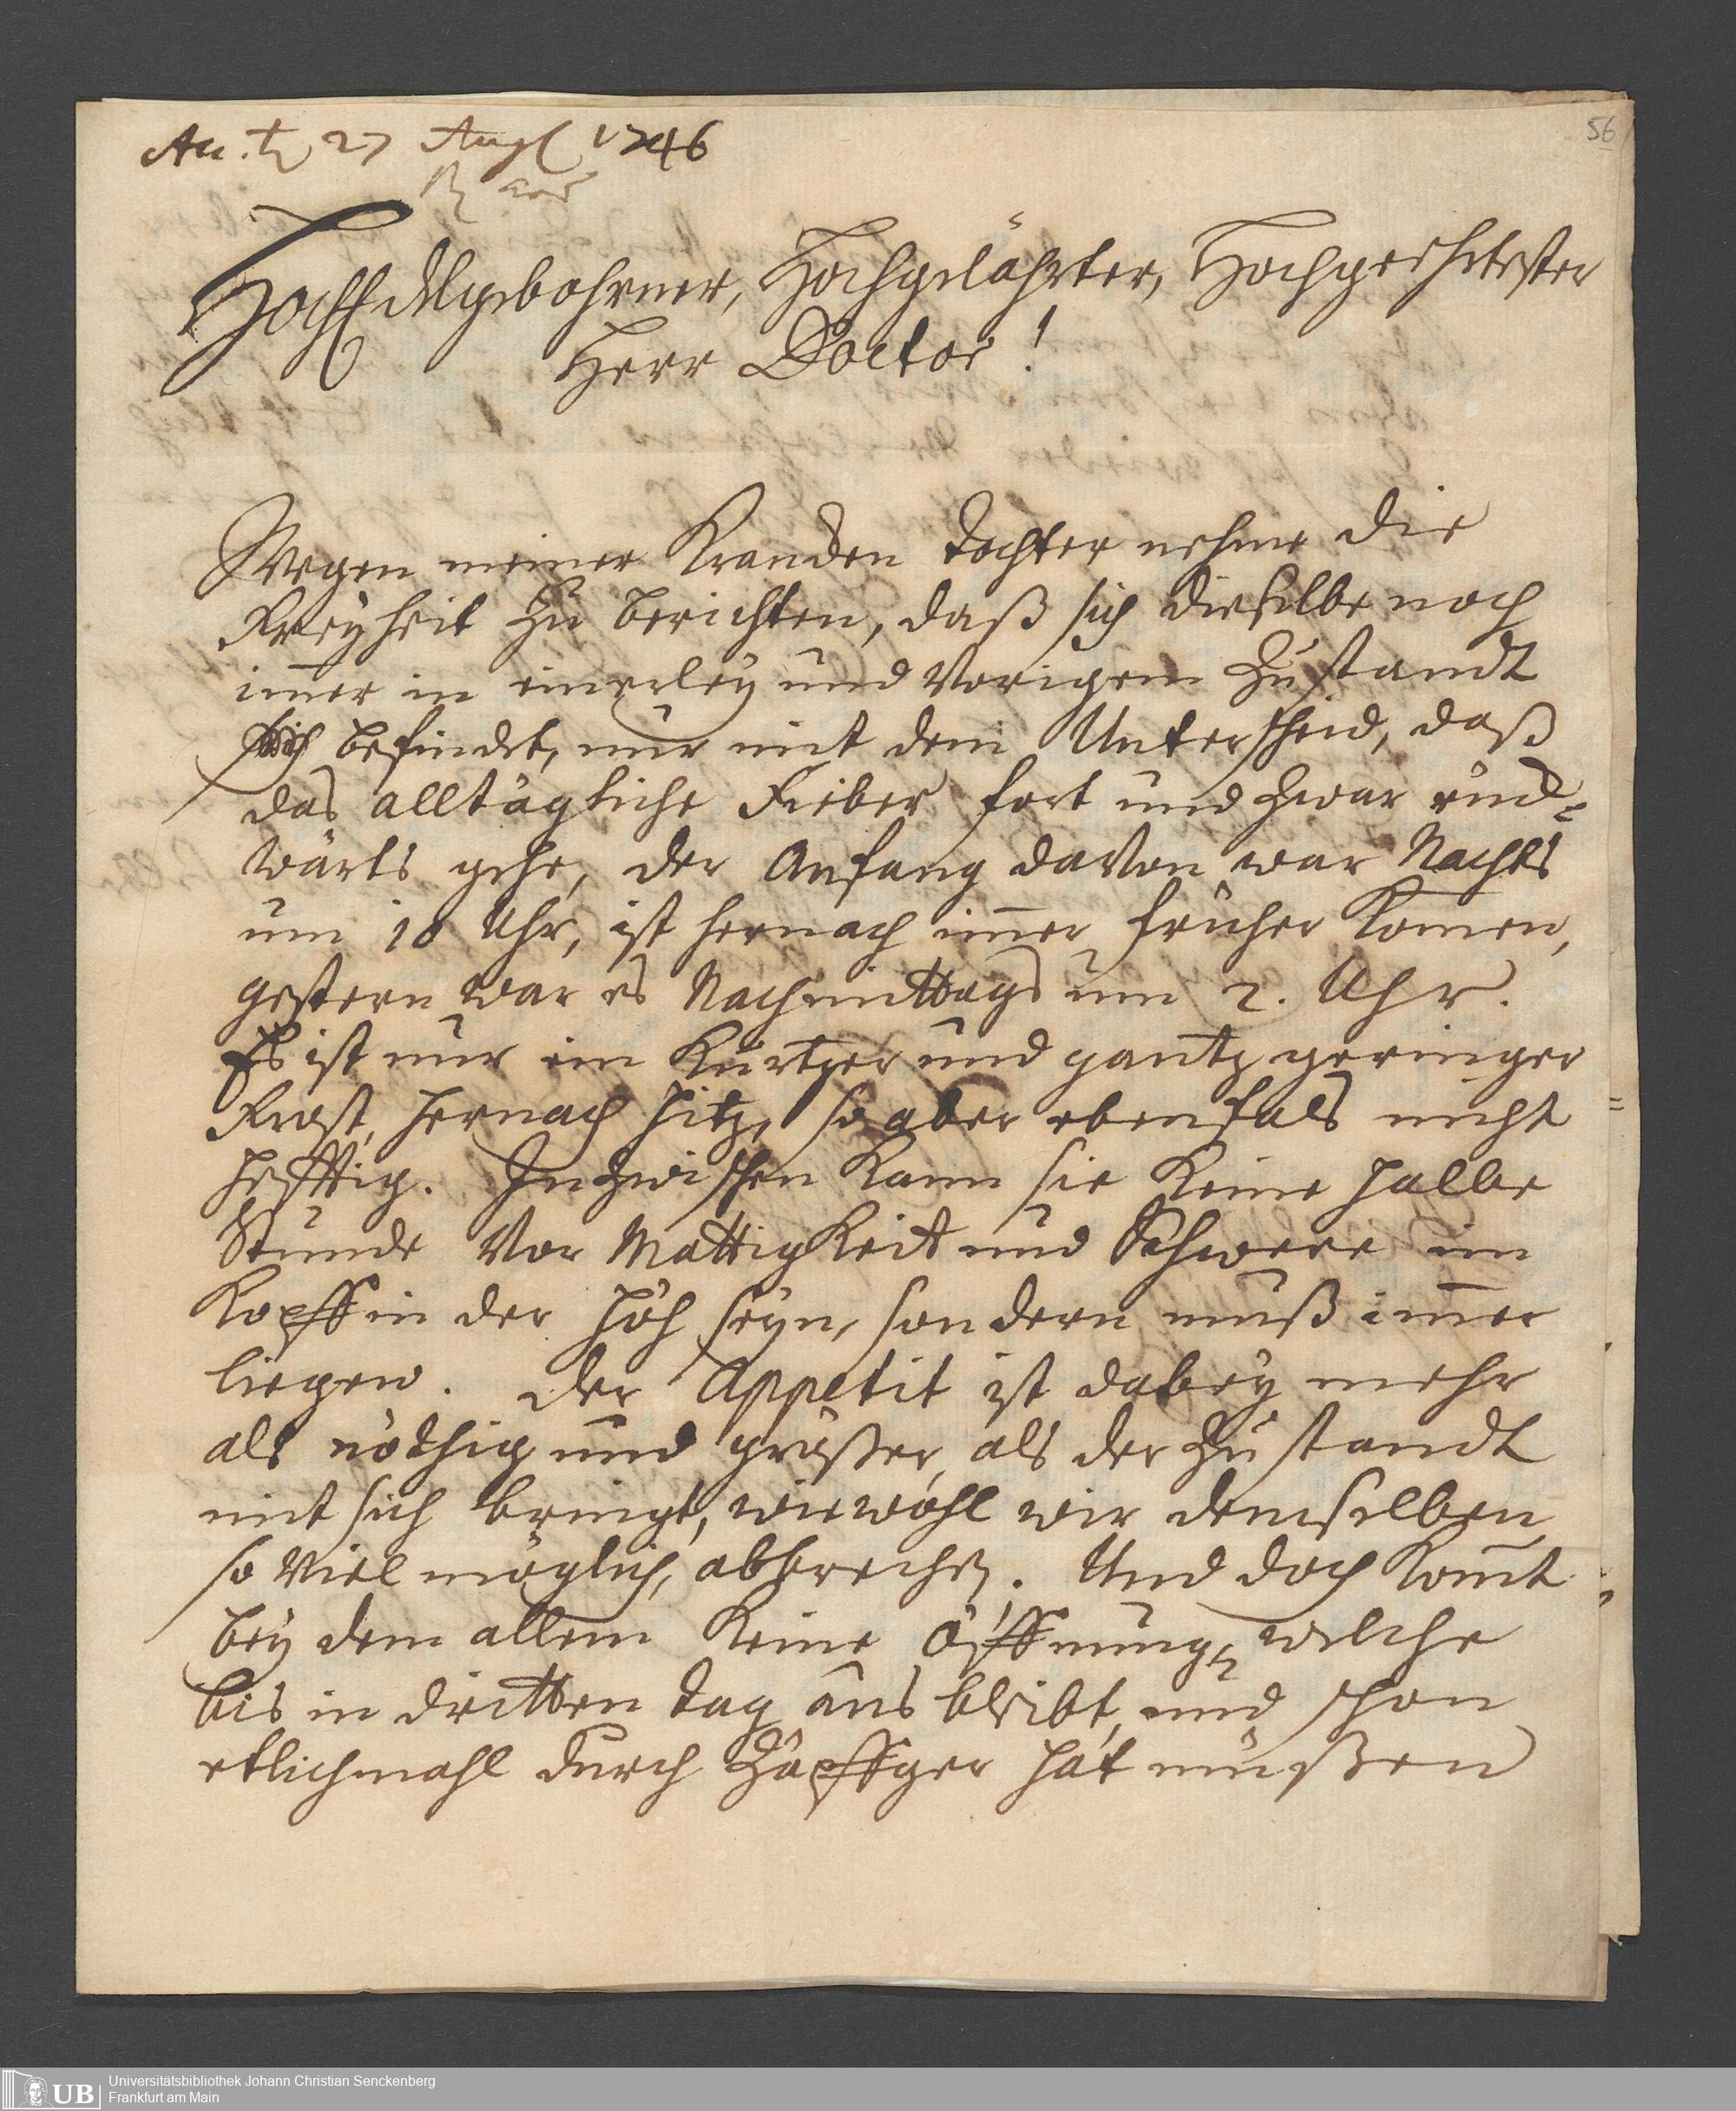 56
27 Aug 1746
HochEdelgebohrner, Hochgelährter, Hochgeehrtester
Herr Doctor!
Wegen meiner Krancken Tochter nehme die
Freyheit zu berichten, daß sich dieselbe noch
im̅er in einerley und Vorigem Zustandt
sich befindet, nur mit dem Unterscheid, daß
das alltägliche Fieber fort und zwar rück-
wärts gehe, der Anfang davon war Nachts
um 10 Uhr, ist hernach im̅er früher Komen,
gestern war es Nachmittags um 2. Uhr.
Es ist nur ein Kurtzer und gantz geringer
Frost, hernach Hitz, so aber ebenfals nicht
hefftig. Inzwischen Kann sie Keine halbe
Stunde Vor Mattigkeit und Schwere im
Kopff in der Höh seyn, sondern muß im̅er
liegen. Der Appetit ist dabey mehr
als nöthig und größer, als der Zustandt
mit sich bringt, wiewohl wir demselben
so Viel möglich, abbrechen. Und doch Kom̅t
bey dem allem Keine Öffnung, welche
bis in dritten Tag aus bleibt, und schon
etlichmahl durch Zäpffger hat müßen
UB Universitätsbibliothek Johann Christian Senckenberg
Frankfurt am Main